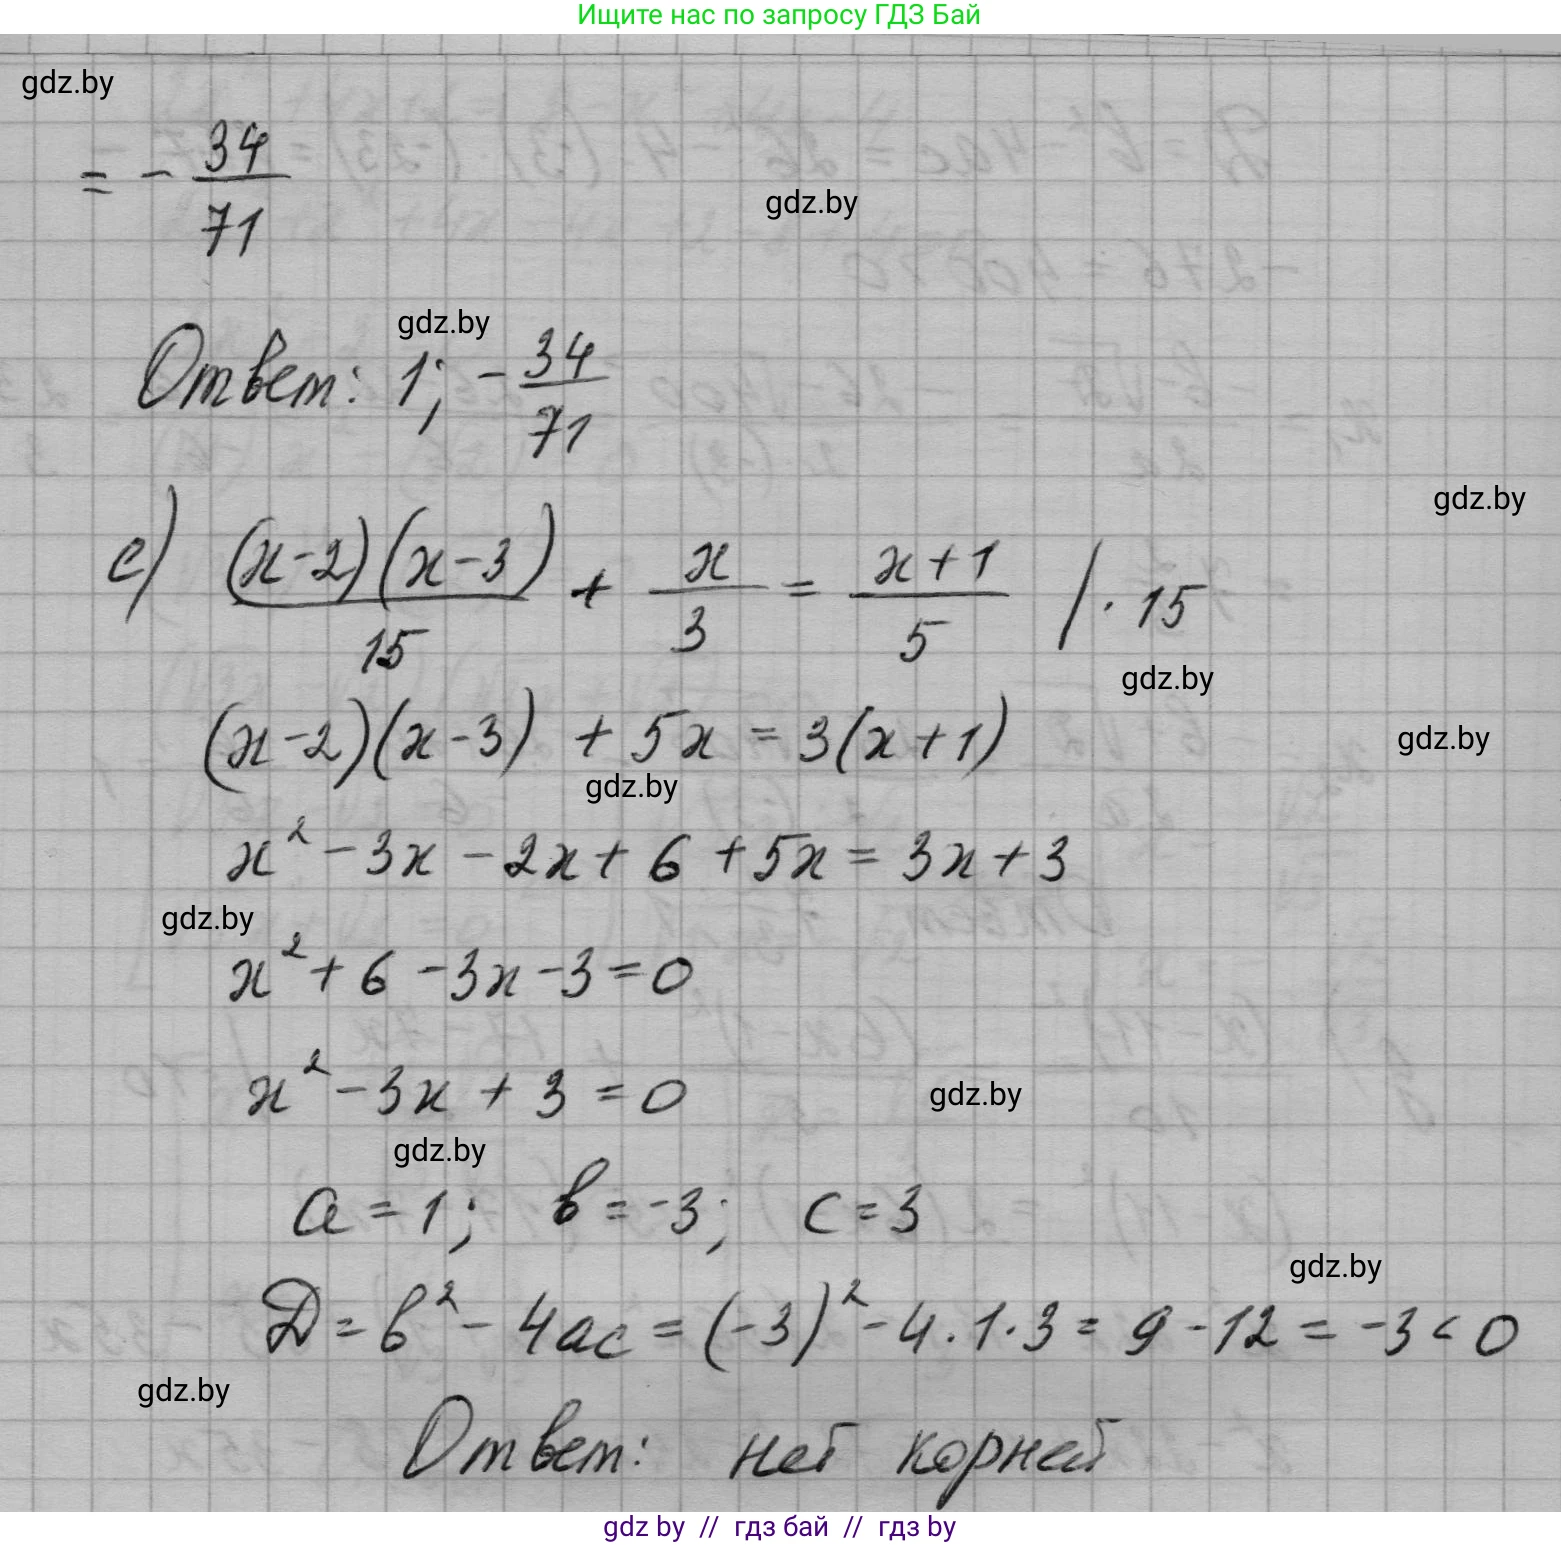 Ищите нас по запросу ГДЗ Бай
gdz.by
= - 34/71
gdz.by
gdz.by
Ответ: 1; - 34/71
gdz.by
е) (x-2)(x-3)/15 + x/3 = x+1/5 / · 15
gdz.by
(x-2)(x-3) + 5x = 3(x+1)
gdz.by
gdz.by
x² - 3x - 2x + 6 + 5x = 3x + 3
gdz.by
x² + 6 - 3x - 3 = 0
x² - 3x + 3 = 0
gdz.by
gdz.by
a = 1; b = -3; c = 3
gdz.by
D = b² - 4ac = (-3)² - 4 · 1 · 3 = 9 - 12 = -3 < 0
gdz.by
Ответ: нет корней
gdz by // гдз бай // гдз by